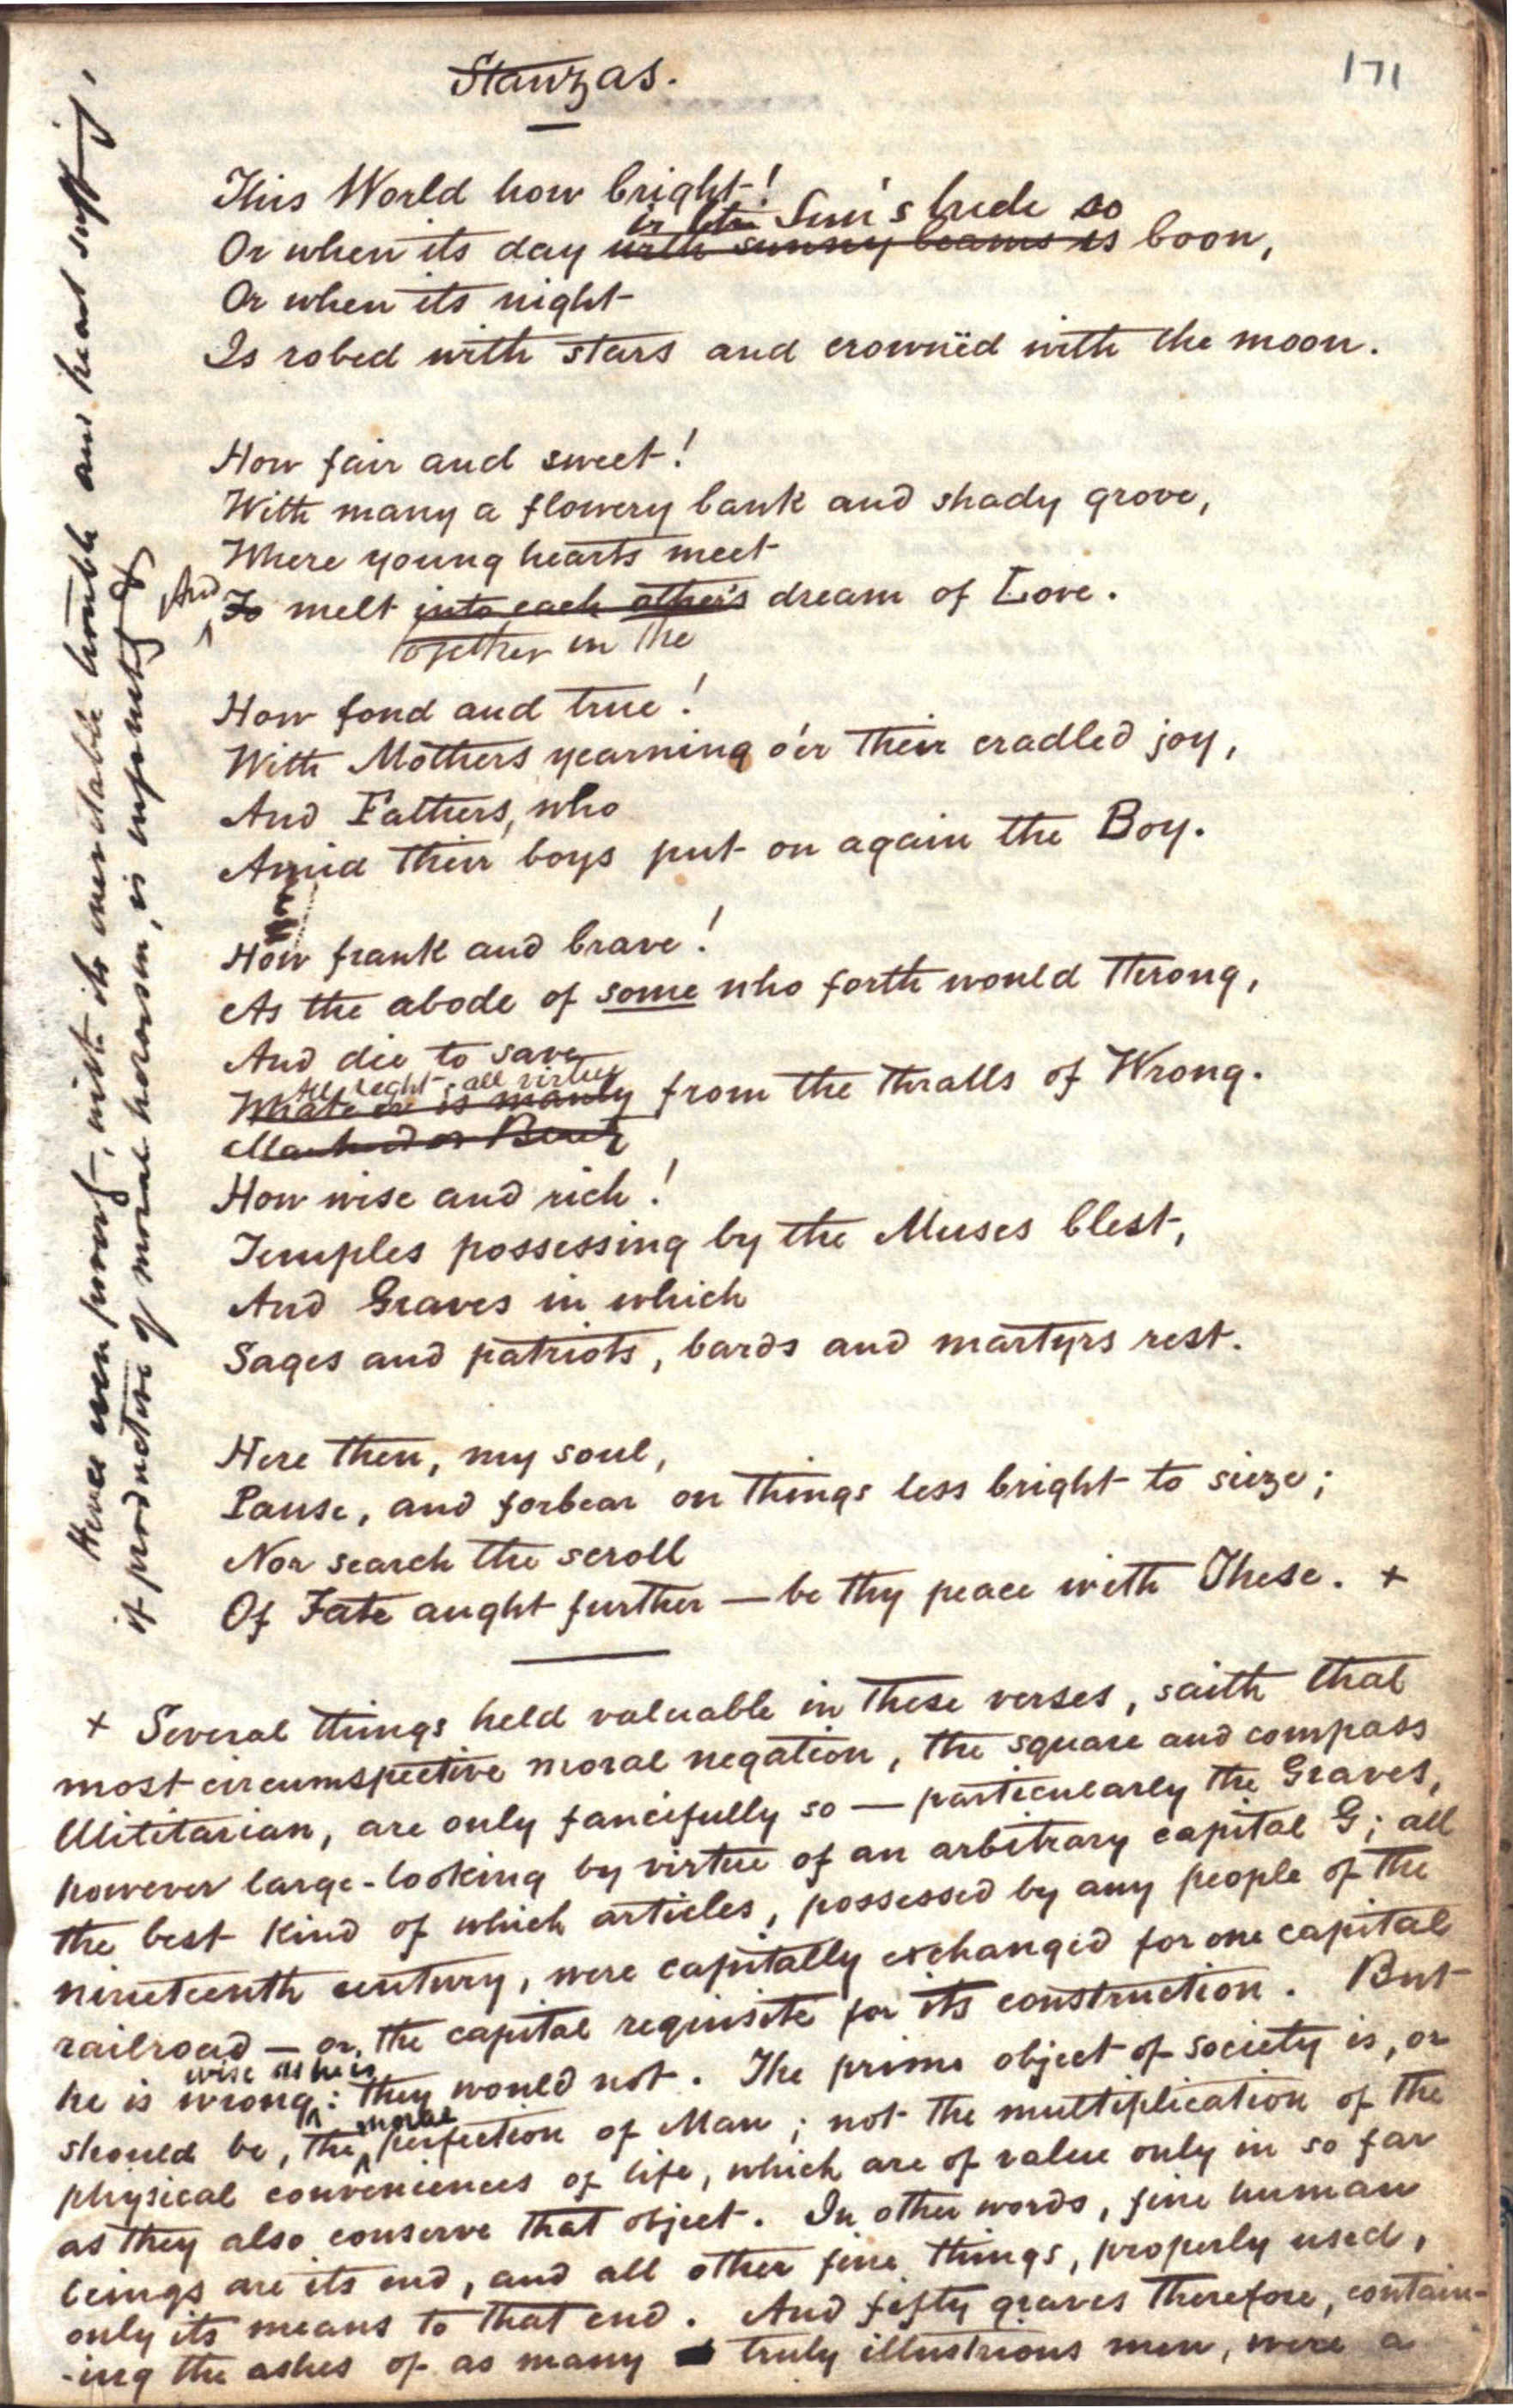 171
Stanzas.
This World how bright!
in the Sun's hede so
Or when its day with sunny beams is boon,
Or when its night
Is robed with stars and crownëd with the moon.
How fair and sweet!
With many a flowery bank and shady grove,
Where young hearts meet
And To melt into each other's dream of Love.
together in the
How fond and true!
With Mothers yearning o'er their cradled joy,
And Fathers, who
Amid their boys put on again the Boy.
How frank and brave!
As the abode of some who forth would throng,
And die to save
All Light, all virtue
Whate'er is manly from the thralls of Wrong.
How wise and rich!
Temples possessing by the Muses blest,
And Graves in which
Sages and patriots, bards and martyrs rest.
Here then, my soul,
Pause, and forbear on things less bright to sieze;
Nor search the scroll
Of Fate aught further — be thy peace with These. +
+ Several things held valuable in these verses, saith that
most circumspective moral negation, the square and compass
Utilitarian, are only fancifully so — particularly the Graves,
however large-looking by virtue of an arbitrary capital G; all
the best kind of which articles, possessed by any people of the
nineteenth century, were capitally exchanged for one capital
railroad — or, the capital requisite for its construction. But
wise as he is
he is wrong: they would not. The prime object of society is, or
moral
should be, the perfection of Man; not the multiplication of the
physical conveniences of life, which are of value only in so far
as they also conserve that object. In other words, fine human
beings are its end, and all other fine things, properly used,
only its means to that end. And fifty graves therefore, contain-
-ing the ashes of as many truly illustrious men, were a
Hence even poverty, with its inevitable trouble and heart
if productive of moral heroism, is